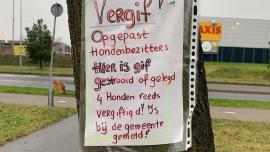 Vergif!
Opgepast
Hondenbezitters
Hier is gif
gestrooid of gelegd
4 Honden reeds
vergiftigd! Is
bij de gemeente
gemeld!
axis